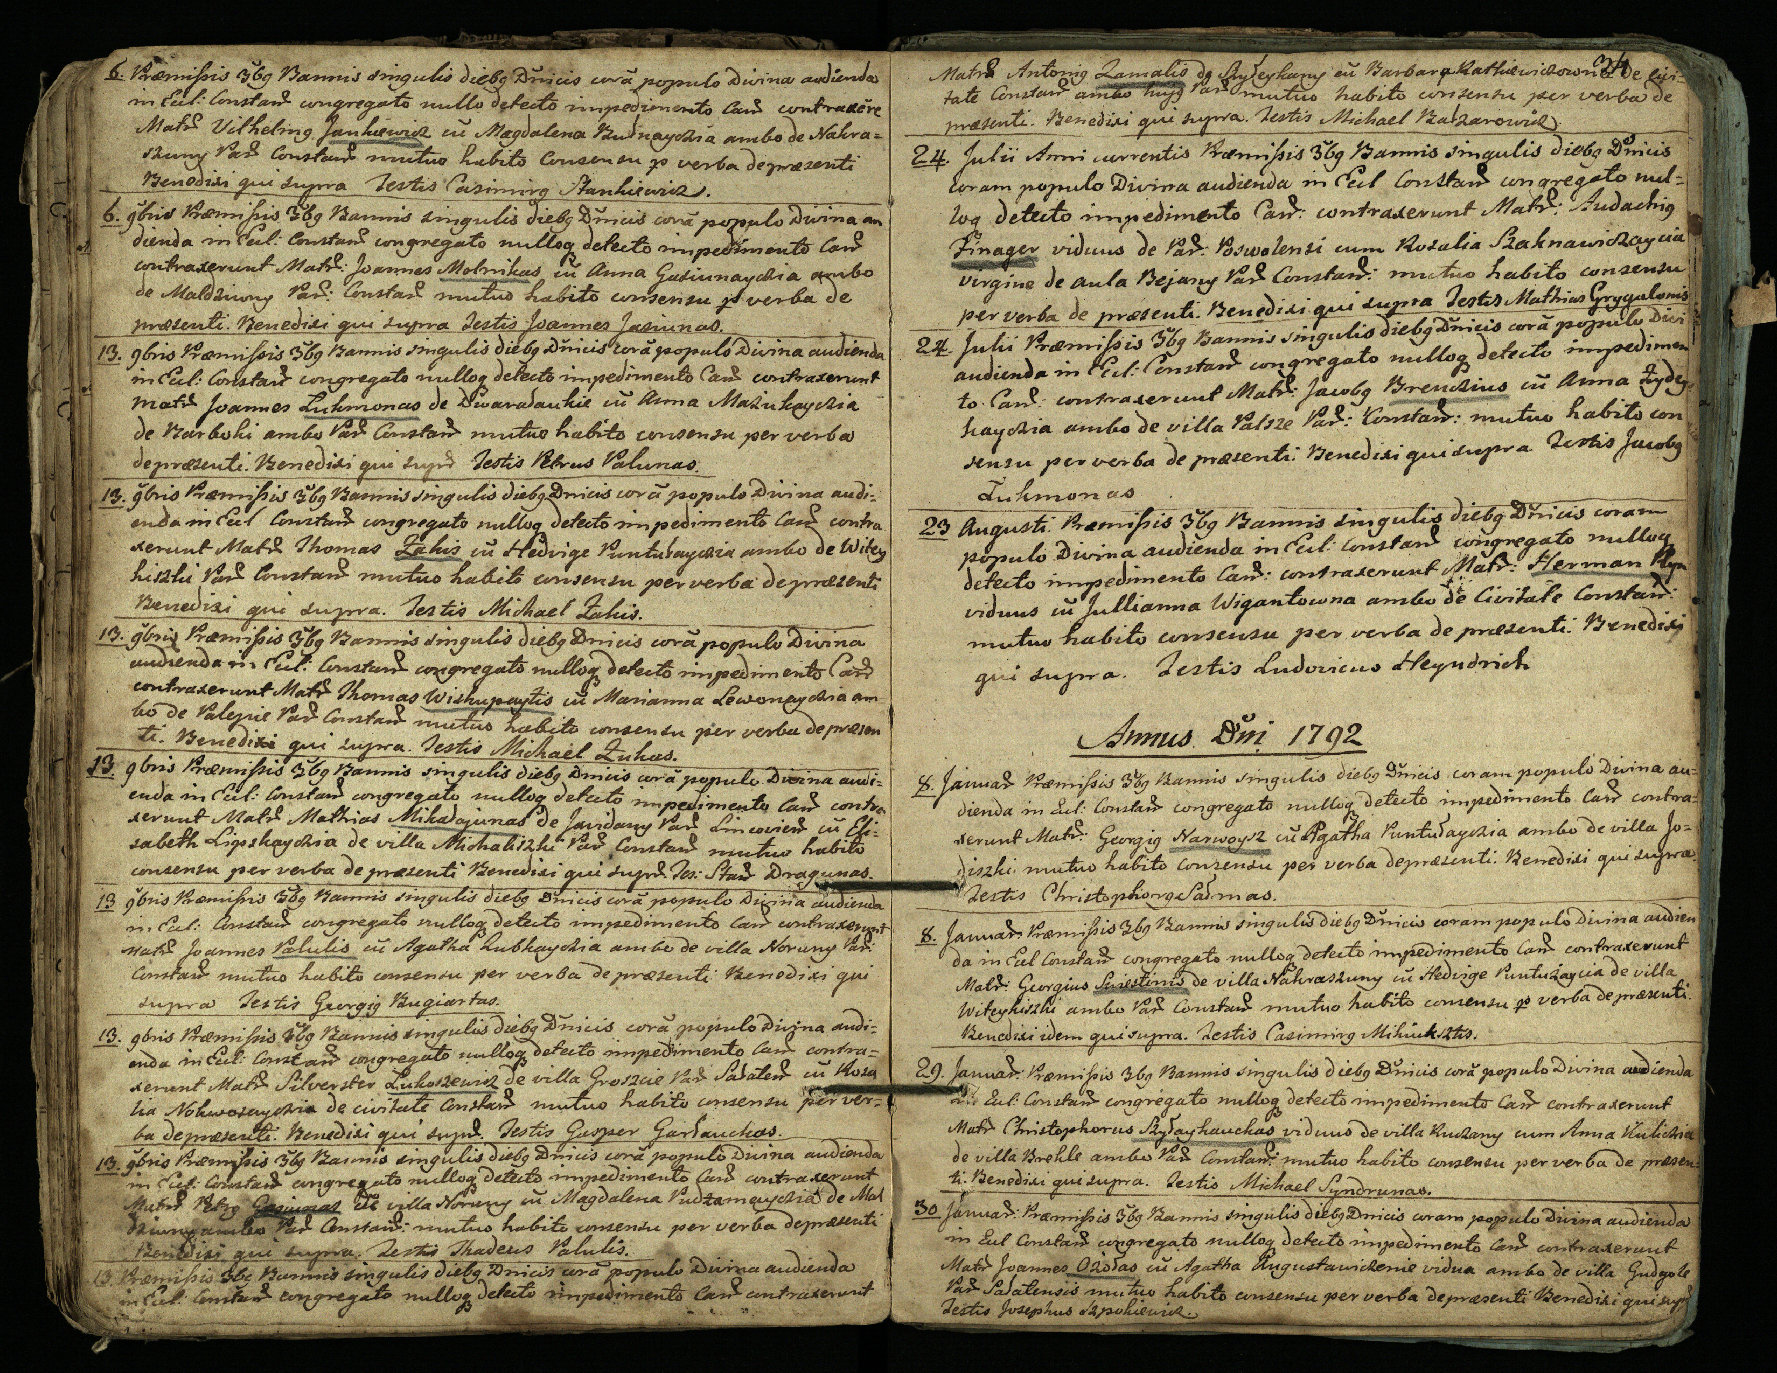 6. Præmissis 3bg Bannis singulis diebg Dnicis corā populo Divina audienda
in Eccl: Constan̄ congregato nullo detecto impedimento Can̄ contraxére
Matr̄ Vilhelmg Jankiewicz cū Magdalena Budnayckia ambo de Nakra=
szuny Par̄ Constan̄ mutuo habito Consensu p verba de præsenti
Benedixi qui supra Testis Casimirg Stankiewicz.
6. 9bris Præmissis 3bg Bannis singulis diebg Dnicis corā populo Divina au
dienda in Eccl: Constan̄ congregato nullog detecto impedimento Can̄
contraxerunt Matr̄: Joannes Melnikas cū Anna Gasiunayckia ambo
de Maldziuny Par̄: Constan̄ mutuo habito consensu p verba de
præsenti. Benedixi qui supra Testis Joannes Jasiunas.
13. 9bris Præmissis 3bg Bannis singulis diebg Dnicis corā populo Divina audienda
in Eccl: Constan̄ congregato nullog detecto impedimento Can̄ contraxerunt
Matr̄ Joannes Lukmonas de Dwaradaukie cū Anna Mazukayckia
de Barboki ambo Par̄ Constan̄ mutuo habito consensu per verba
de præsenti. Benedixi qui supr̄ Testis Petrus Palunas.
13. 9bris Præmissis 3bg Bannis singulis diebg Dnicis corā populo Divina audi=
enda in Eccl Constan̄ congregato nullog detecto impedimento Can̄ contra
xerunt Matr̄ Thomas Zakis cū Hedvige Puntuzayckia ambo de Witey
kiszki Par̄ Constan̄ mutuo habito consensu per verba de præsenti
Benedixi qui supra. Testis Michael Zakis.
13. 9bris Præmissis 3bg Bannis singulis diebg Dnicis corā populo Divina
audienda in Eccl: Constan̄ congregato nullog detecto impedimento Can̄
contraxerunt Matr̄ Thomas Wiskupaytis cū Marianna Lewonayckia am
bo de Palepie Par̄ Constan̄ mutuo habito consensu per verba de præsen
ti. Benedixi qui supra. Testis Michael Zukas.
13 9bris Præmissis 3bg Bannis singulis diebg Dnicis corā populo Divina audi=
enda in Eccl: Constan̄ congregato nullog detecto impedimento Can̄ contra
xerunt Matr̄ Mathias Mikalajunas de Jaudany Par̄ Lincovien̄ cū Eli=
sabeth Lipskayckia de villa Michaliszki Par̄ Constan̄ mutuo habito
consensu per verba de præsenti Benedixi qui supr̄ Tes: Stan̄ Dragunas.
13 9bris Præmissis 3bg Bannis singulis diebg Dnicis corā populo Divina audienda
in Eccl: Constan̄ congregato nullog detecto impedimento Can̄ contraxerunt
Matr̄ Joannes Palulis cū Agatha Lubkayckia ambo de villa Noruny Par̄:
Constan̄ mutuo habito consensu per verba de præsenti Benedixi qui
supra Testis Georgig Bugiartas.
13. 9bris Præmissis 3bg Bannis singulis diebg Dnicis corā populo Divina audi=
enda in Eccl: Constan̄ congregato nullog detecto impedimento Can̄ contra=
xerunt Matr̄ Silverster Lukoszewicz de villa Groszcie Par̄ Salaten̄ cū Rosa
lia Nokwosayckia de civitate Constan̄ mutuo habito consensu per ver=
ba de præsenti. Benedixi qui supr̄. Testis Gasper Garlauckas.
13. 9bris Præmissis 3bg Bannis singulis diebg Dnicis corā populo Divina audienda
in Eccl: Constan̄ congregato nullog detecto impedimento Can̄ contraxerunt
Matr̄ Petrg Gasiunas de villa Noruny cū Magdalena Pudzamayckia de Mal
dziuny ambo Par̄ Constan̄: mutuo habito consensu per verba de præsenti
Benedixi qui supra. Testis Thadeus Palulis.
13. Præmissis 3bg Bannis singulis diebg Dnicis corā populo Divina audienda
in Eccl: Constan̄ congregato nullog detecto impedimento Can̄ contraxerunt
34
Matr̄ Antonig Zamalis de Szyleykany cū Barbara Ratkiewiczowna de civi=
tate Constan̄ ambo hujg Par̄ mutuo habito consensu per verba de
præsenti. Benedixi qui supra. Testis Michael Bazarowicz
24. Julii Anni currentis Præmissis 3bg Bannis singulis diebg Dnicis
coram populo Divina audienda in Eccl Constan̄ congregato nul=
log detecto impedimento Can̄: contraxerunt Matr̄: Audachig
Finager viduus de Par̄: Poswolensi cum Rosalia Szaknawiczaycia
virgine de aula Bejany Par̄ Constan̄: mutuo habito consensu
per verba de præsenti. Benedixi qui supra Testis Mathias Grygulonis
24. Julii Præmissis 3bg Bannis singulis diebg Dnicis corā populo Divi
audienda in Eccl: Constan̄ congregato nullog detecto impedimen
to Can̄: contraxerunt Matr̄: Jacobg Brenckius cū Anna Zydzy
kayckia ambo de villa Palsze Par̄: Constan̄: mutuo habito con
sensu per verba de præsenti. Benedixi qui supra Testis Jacobg
Lukmonas
23 Augusti Præmissis 3bg Bannis singulis diebg Dnicis coram
populo Divina audienda in Eccl: Constan̄ congregato nullog
detecto impedimento Can̄: contraxerunt Matr̄: Herman
viduus cū Jullianna Wigantowna ambo de Civitate Constan̄:
mutuo habito consensu per verba de præsenti. Benedixi
qui supra. Testis Ludovicus Heyndrich
Annus Dni 1792
8. Januar̄ Præmissis 3bg Bannis singulis diebg Dnicis coram populo Divina au=
dienda in Eccl: Constan̄ congregato nullog detecto impedimento Can̄ contra=
xerunt Matr̄: Georgig Narwoysz cū Agatha Puntuzayckia ambo de villa Jo=
diszki mutuo habito consensu per verba de præsenti. Benedixi qui supra.
Testis Christophorg Salmas.
8. Januar̄ Præmissis 3bg Bannis singulis diebg Dnicis coram populo Divina audien
da in Eccl Constan̄ congregato nullog detecto impedimento Can̄ contraxerunt
Matr̄: Georgius Sviestinis de villa Nakraszuny cū Hedvige Puntuzaycia de villa
Witeykiszki ambo Par̄ Constan̄ mutuo habito consensu p verba de præsenti.
Benedixi idem qui supra. Testis Casimirg Mikucksztis.
29. Januar̄. Præmissis 3bg Bannis singulis diebg Dnicis corā populo Divina audienda
in Eccl: Constan̄ congregato nullog detecto impedimento Can̄ contraxerunt
Matr̄ Christophorus Szylayhauckas viduus de villa Ruckany cum Anna Kulickia
de villa Brekle ambo Par̄ Constan̄: mutuo habito consensu per verba de præsen=
ti. Benedixi qui supra. Testis Michael Syndrunas.
30 Januar̄: Præmissis 3bg Bannis singulis diebg Dnicis coram populo Divina audienda
in Eccl Constan̄ congregato nullog detecto impedimento Can̄ contraxerunt
Matr̄ Joannes Ozolas cū Agatha Augustawiczenie vidua ambo de villa Gudgole
Par̄ Salatensis mutuo habito consensu per verba de præsenti Benedixi qui supr̄
Testis Josephus Szpokiewicz.